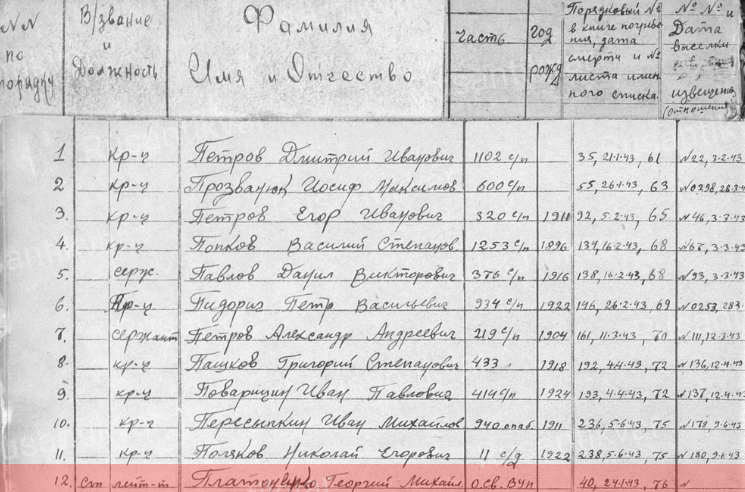 NN по порядку В/звание и Должность Фамилия Имя и Отчество Часть год рожд Порядковый № в книге погребения, дата смерти и № листа именного списка. №№ и Дата высылки извещения (отношения)
1 кр-ц Петров Дмитрий Иванович 1102 с/п 35, 21.1.43, 61 N22, 3-2-43
2 кр-ц Прозванюк Иосиф Максимов 600 с/п 55, 26.1.43, 63 N0298, 28.3.4
3. кр-ц Петров Егор Иванович 320 с/п 1911 92, 5.2.43, 65 N46, 3-3-43
4. кр-ц Попков Василий Степанов 1253 с/п 1896 134, 16.2.43, 68 N67, 3-3-43
5. серж. Павлов Данил Викторович 376 с/п 1916 138, 16.2.43, 68 N93, 3-3-43
6. Кр-ц Пидорич Петр Васильевич 934 с/п 1922 146, 26.2.43, 69 N0253, 283.
7. сержант Петров Александр Андреевич 219 с/п 1904 161, 11.3.43, 70 N111, 12-3-43
8. кр-ц Пашков Григорий Степанович 433 1918 192, 4.4.43, 72 N136, 12.4.43
9. кр-ц Поварицин Иван Павлович 414 с/п 1924 193, 4.4.43, 72 N137, 12.4.43
10. кр-ц Пересыпкин Иван Михайлов 940 опаб. 1911 236, 5.6.43, 75 N178, 9.6.43
11. кр-ц Поляков Николай Егорович 11 с/д 1922 238, 5.6.43, 75 N180, 9.6.43
12. ст лейт-т Платоненко Георгий Михайл. О.св. ВЧП 40, 24.1.43, 76 N